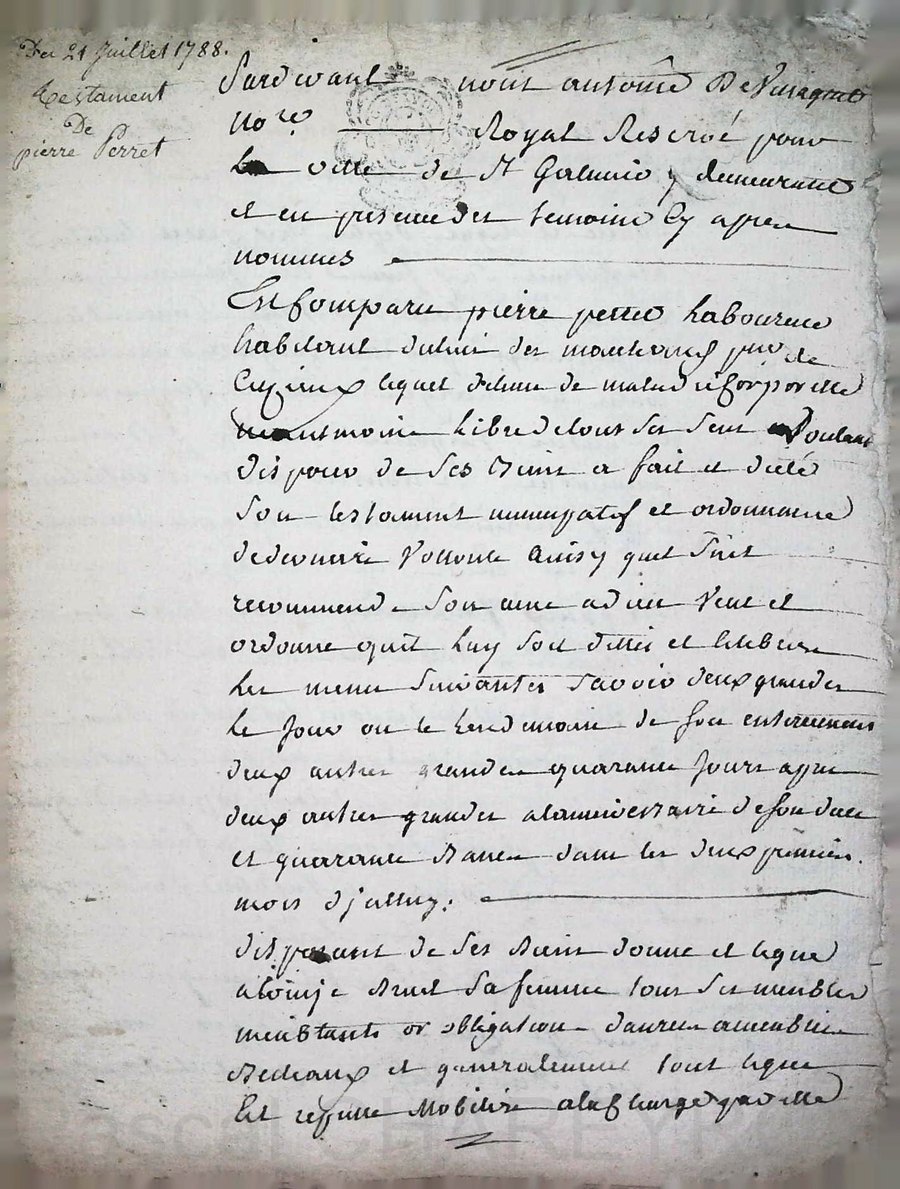 Du 21 Juillet 1788.
Testament
De
pierre Perret
Pardevant nous antoine De
no.re Royal Reservé pour
la ville de St Galmier y demeurant
et en presence des temoins Cy apres
nommes
Est Comparu pierre perret Laboureur
habitant du lieu des parr de
Cuzieux lequel detenu de maladie Corporelle
neantmoins Libre de tous ses sens Voulant
disposer de ses biens a fait et dicté
Son testament nuncupatif et ordonnance
de derniere Vollonté Ainsy quil Suit
recommende Son ame a dieu Veut et
ordonne quil Luy Soit dittes et Celebrees
Les messes Suivantes Savoir deux grandes
le Jour ou le Lendemain de Son enterrement
deux autres grandes quarante Jours apres
deux autres grandes a lanniversaire de son deces
et quarante basses dans les deux premiers
mois dj
disposant de ses biens donne et legue
a brunel Sa femme tous ses meubles
meublants or obligations danrees
bestiaux et generalement tout ceque
Est reputté Mobilier a la Charge par elle